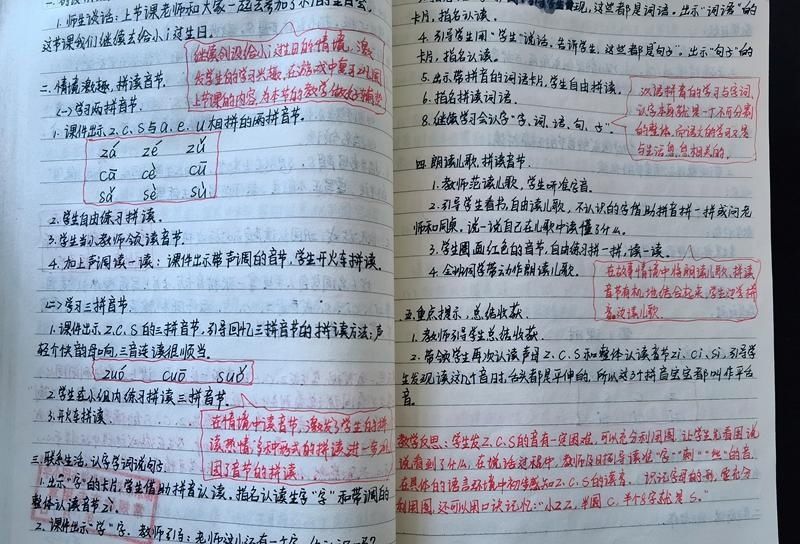 1. 师生谈话:上节课老师和大家一起去参加了小i的生日会,
这节课我们继续去给小i过生日。
继续创设给小i过生日的情境,激
发学生的学习兴趣,在游戏中复习巩固
上节课的内容,为本节的教学做好铺垫
二、情境激趣,拼读音节。
(一)学习两拼音节。
1. 课件出示z、c、s与a、e、u相拼的两拼音节。
zá zé zǔ
cā cè cū
sǎ sè sù
2. 学生自由练习拼读。
3. 学生当小教师领读音节。
4. 加上声调读一读:课件出示带声调的音节,学生开火车拼读。
(二)学习三拼音节。
1. 课件出示z、c、s的三拼音节,引导回忆三拼音节的拼读方法:声
轻介快韵母响,三音连读很顺当。
zuó cuō suǒ
2. 学生在小组内练习拼读三拼音节。
3. 开火车拼读。
在情境中读音节,激发了学生自拼
读热情,多种形式的拼读进一步巩
固了音节的拼读。
三、联系生活,认字学词说句子。
1. 出示“字”的卡片,学生借助拼音认读。指名认读生字“字”和带调的
整体认读音节zì。
2. 课件出示“学”字,教师引导:老师这儿还有一个字,
现,这些都是词语。出示“词语”的
卡片,指名认读。
4. 引导学生用“学生”说话,告诉学生,这些都是句子。出示“句子”的
卡片,指名认读。
5. 出示带拼音的词语卡片,学生自由拼读。
6. 指名拼读词语。
8. 继续学习会认字“字、词、语、句、子”。
汉语拼音的学习与字词
认字本身就是一个不可分割
的整体,而语文的学习又是
与生活息息相关的。
四、朗读儿歌,拼读音节。
1. 教师范读儿歌,学生听准字音。
2. 引导学生看书,自由读儿歌,不认识的字借助拼音拼一拼或问老
师和同桌,说一说自己在儿歌中读懂了什么。
3. 学生圈画红色的音节,自由练习拼一拼,读一读。
4. 全班同学带动作朗读儿歌。
在故事情境中将朗读儿歌、拼读
音节有机地结合起来,学生边学拼
音边读儿歌。
五、重点提示,总结收获。
1. 教师引导学生总结收获。
2. 带领学生再次认读声母z、c、s和整体认读音节zi、ci、si,引导学
生发现读这几个音时,舌头都是平伸的,所以这3个拼音宝宝都叫作平舌
音。
教学反思:学生发z、c、s的音有一定困难,可以充分利用图,让学生先看图说
说看到了什么,在说话过程中,教师及时指导读准“字”“刺”“丝”的音,
在具体的语言环境中初步感知z、c、s的读音。识记字母的形,要充分
利用图,还可以用口诀记忆:“小2z,半圆c,半个8字就是s。”